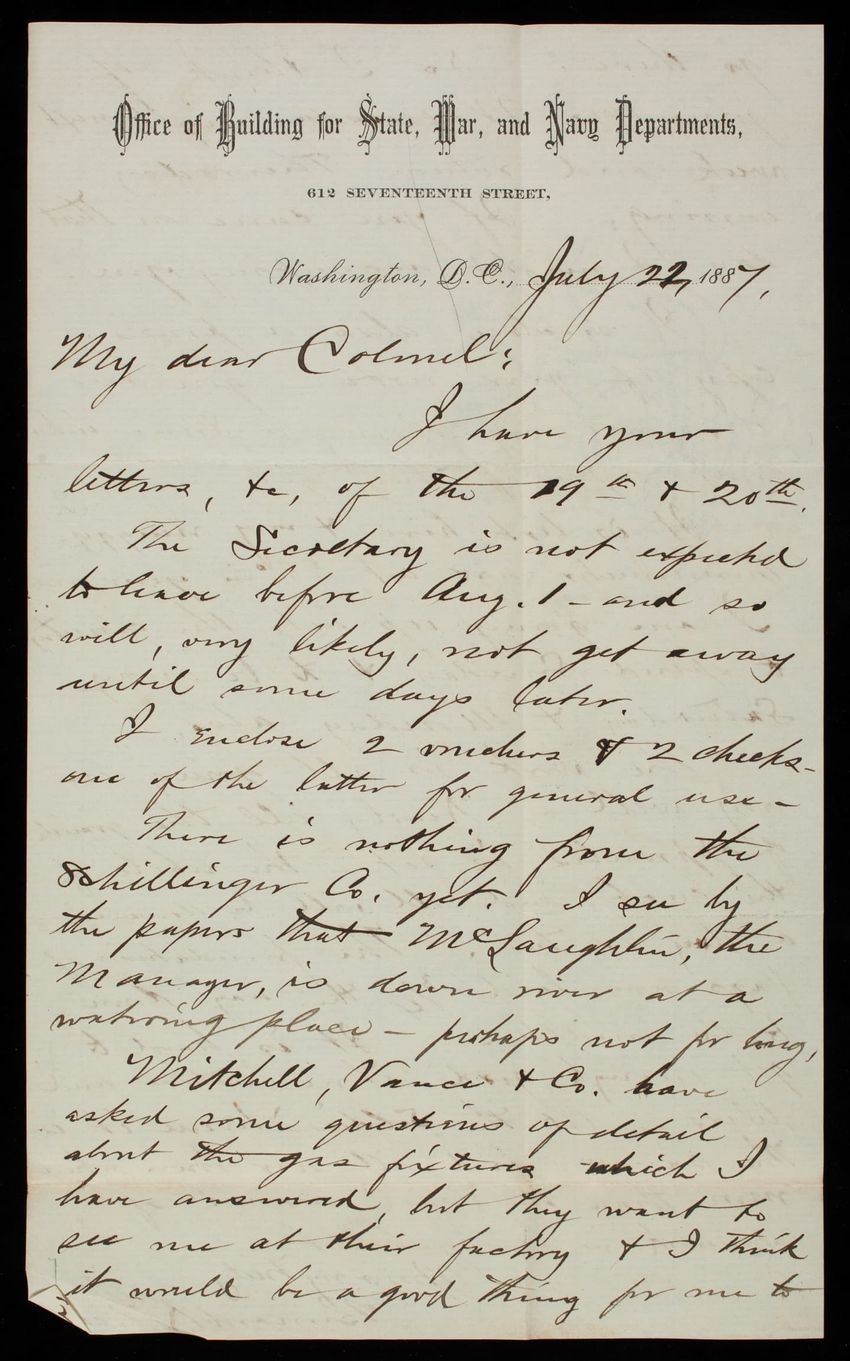 Office of Building for State, War, and Navy Departments,
612 SEVENTEENTH STREET,
Washington, D.C., July 22, 1887,
My dear Colonel;
I have your
letters, &c, of the 19th & 20th.
The Secretary is not expected
to leave before Aug. 1 - and so
will, very likely, not get away
until some days later.
I enclose 2 vouchers & 2 checks -
one of the latter for general use -
There is nothing from the
Schillinger Co. yet. I see by
the papers that McLaughlin, the
Manager, is down river at a
watering place - perhaps not for long,
Mitchell, Vance & Co. have
asked some questions of detail
about the gas fixtures which I
have answered, but they want to
see me at their factory & I think
it would be a good thing for me to